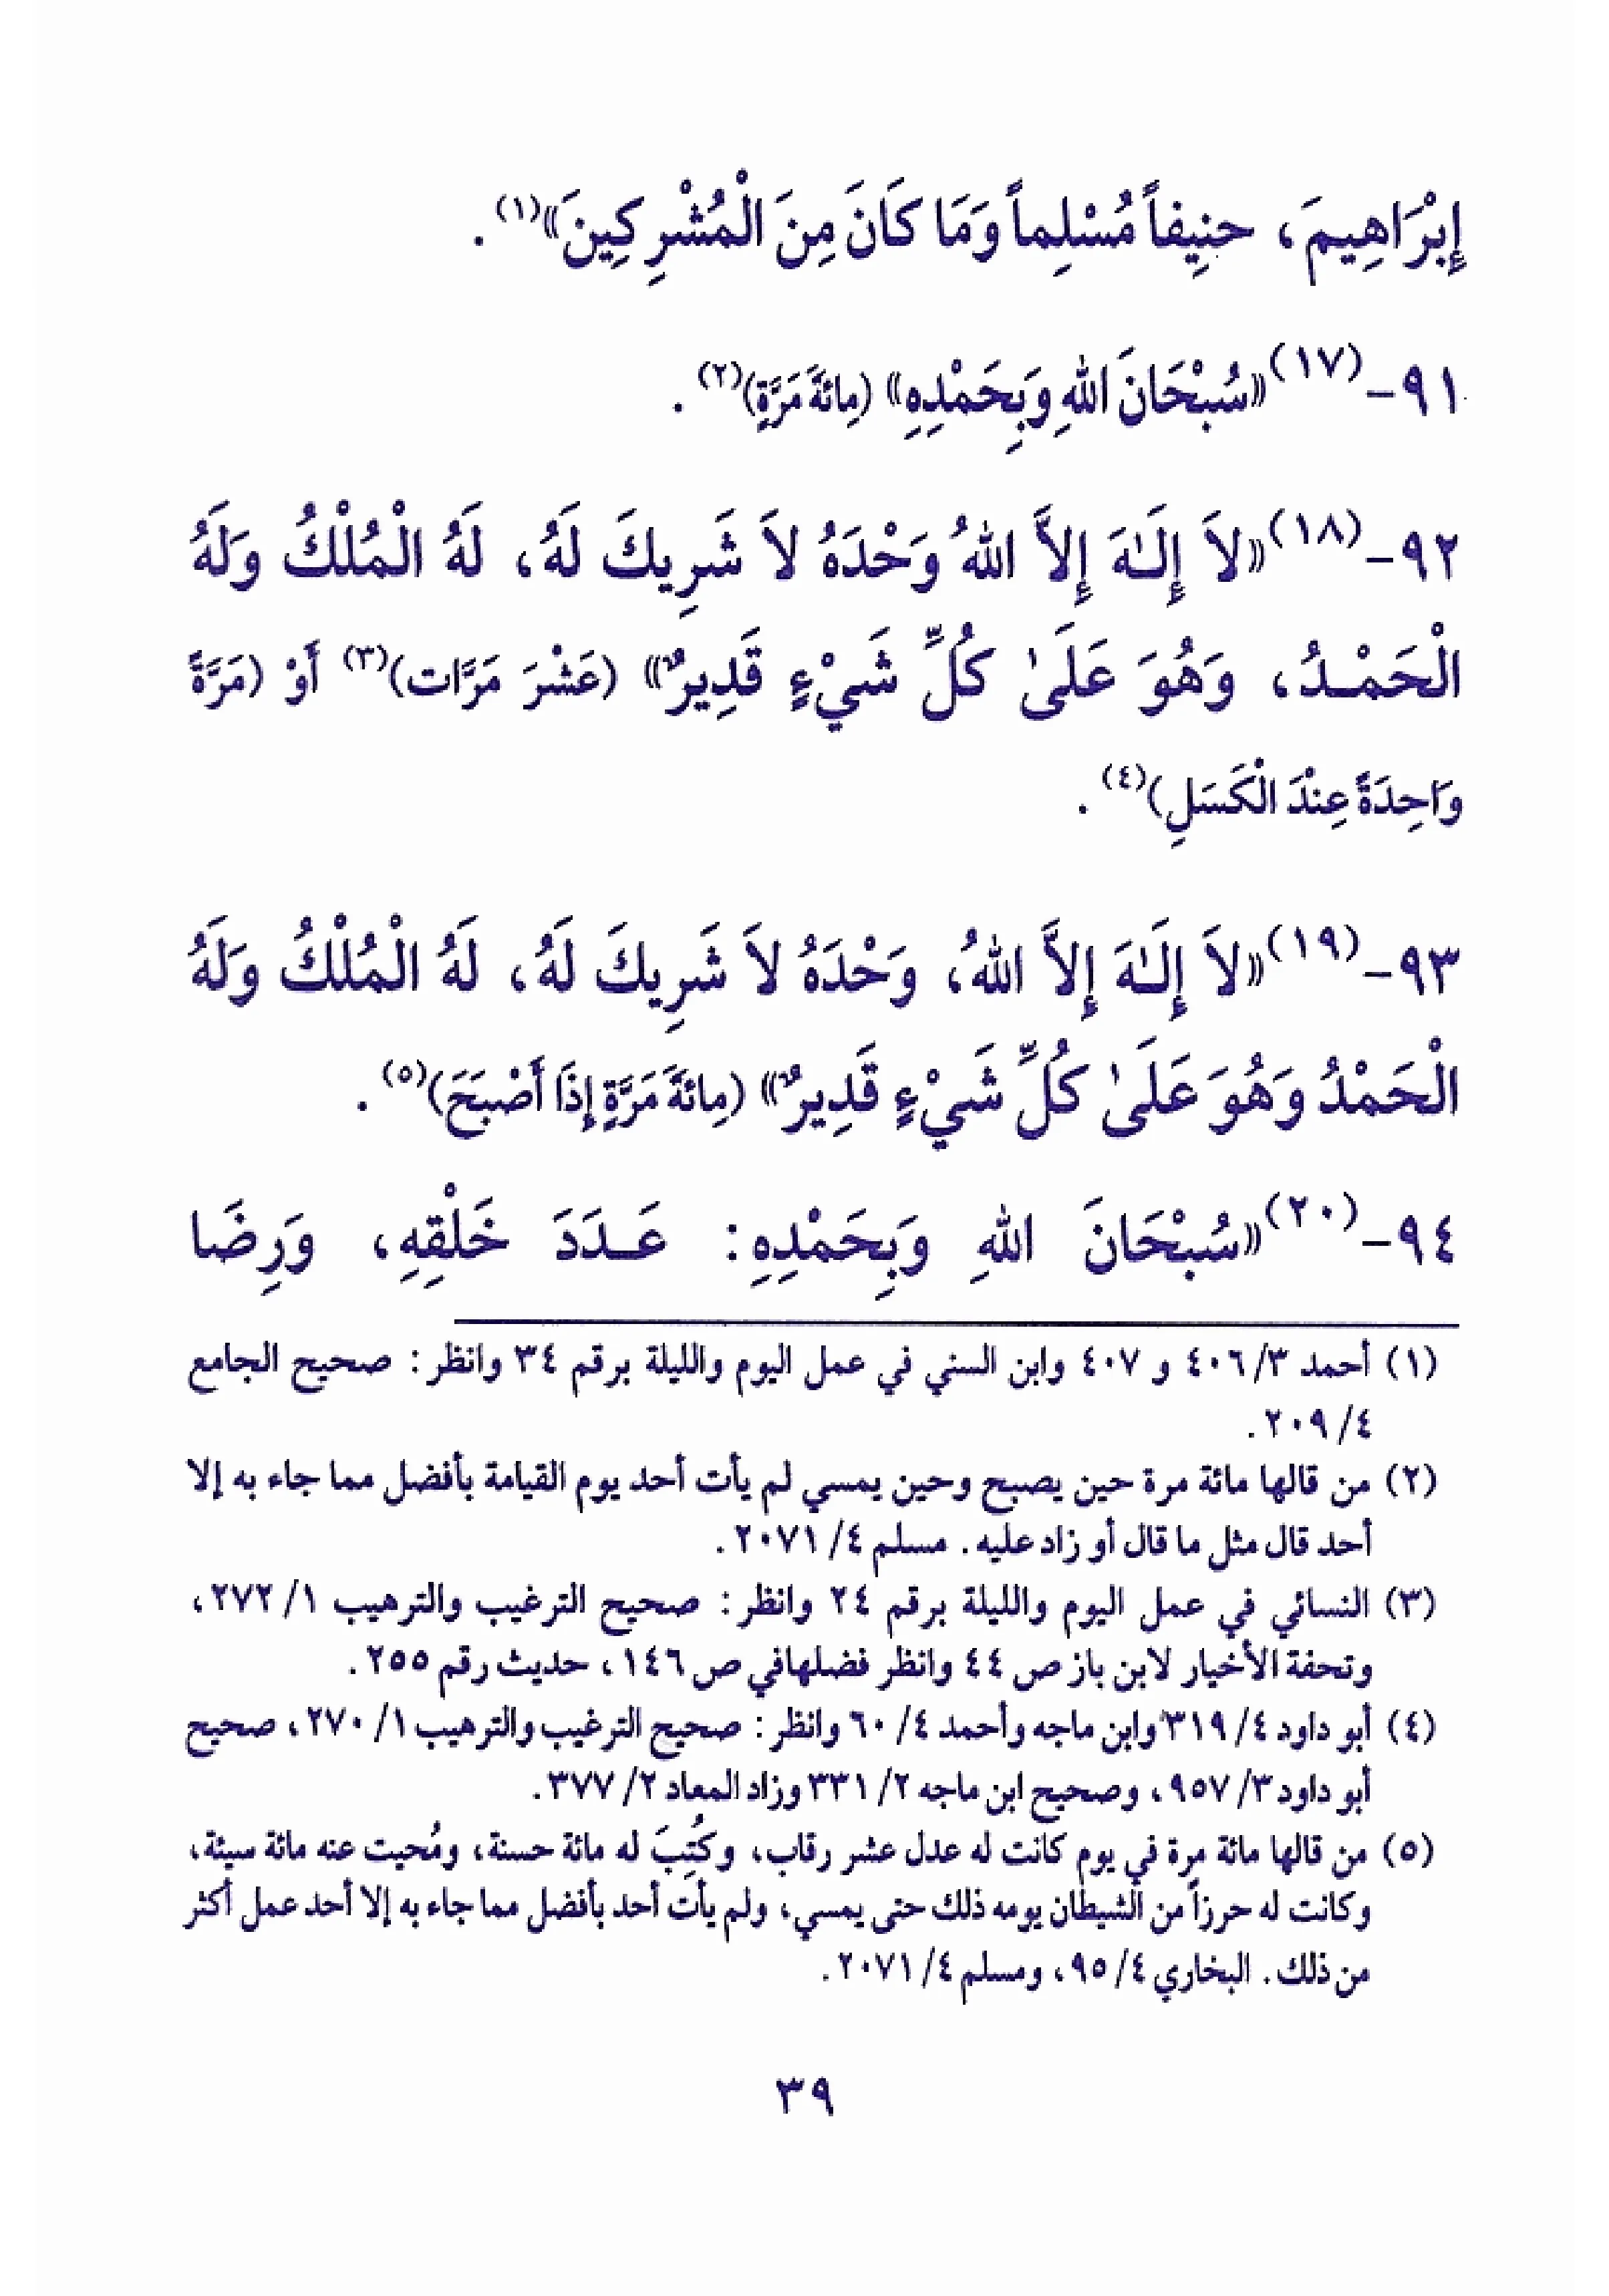 إِبْرَاهِيمَ، حنِيفاً مُسْلِماً وَمَا كَانَ مِنَ الْمُشْرِكِينَ»(١).
٩١-(١٧)«سُبْحَانَ اللهِ وَبِحَمْدِهِ» (مِائَةَ مَرَّةٍ)(٢).
٩٢-(١٨)«لاَ إِلَـٰهَ إِلاَّ اللهُ وَحْدَهُ لاَ شَرِيكَ لَهُ، لَهُ الْمُلْكُ وَلَهُ
الْحَمْـدُ، وَهُوَ عَلَىٰ كُلِّ شَيْءٍ قَدِيرٌ» (عَشْرَ مَرَّات)(٣) أَوْ (مَرَّةً
وَاحِدَةً عِنْدَ الْكَسَلِ)(٤).
٩٣-(١٩)«لاَ إِلَـٰهَ إِلاَّ اللهُ، وَحْدَهُ لاَ شَرِيكَ لَهُ، لَهُ الْمُلْكُ وَلَهُ
الْحَمْدُ وَهُوَ عَلَىٰ كُلِّ شَيْءٍ قَدِيرٌ» (مِائَةَ مَرَّةٍ إِذَا أَصْبَحَ)(٥).
٩٤-(٢٠)«سُبْحَانَ اللهِ وَبِحَمْدِهِ: عَـدَدَ خَلْقِهِ، وَرِضَا
(١) أحمد ٣/ ٤٠٦ و ٤٠٧ وابن السني في عمل اليوم والليلة برقم ٣٤ وانظر: صحيح الجامع
٤/ ٢٠٩.
(٢) من قالها مائة مرة حين يصبح وحين يمسي لم يأت أحد يوم القيامة بأفضل مما جاء به إلا
أحد قال مثل ما قال أو زاد عليه. مسلم ٤/ ٢٠٧١.
(٣) النسائي في عمل اليوم والليلة برقم ٢٤ وانظر: صحيح الترغيب والترهيب ١/ ٢٧٢،
وتحفة الأخيار لابن باز ص ٤٤ وانظر فضلهافي ص ١٤٦، حديث رقم ٢٥٥.
(٤) أبو داود ٤/ ٣١٩ وابن ماجه وأحمد ٤/ ٦٠ وانظر: صحيح الترغيب والترهيب ١/ ٢٧٠، صحيح
أبو داود ٣/ ٩٥٧، وصحيح ابن ماجه ٢/ ٣٣١ وزاد المعاد ٢/ ٣٧٧.
(٥) من قالها مائة مرة في يوم كانت له عدل عشر رقاب، وكُتِبَ له مائة حسنة، ومُحيت عنه مائة سيئة،
وكانت له حرزاً من الشيطان يومه ذلك حتى يمسي، ولم يأت أحد بأفضل مما جاء به إلا أحد عمل أكثر
من ذلك. البخاري ٤/ ٩٥، ومسلم ٤/ ٢٠٧١.
٣٩